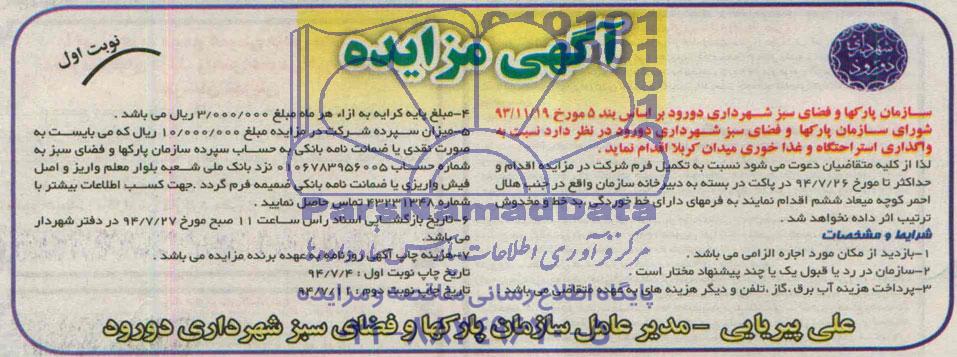 شهرداری دورود
آگهی مزایده
نوبت اول
سازمان پارکها و فضای سبز شهرداری دورود بر اساس بند ۵ مورخ ۹۳/۱۱/۱۹
شورای سازمان پارکها و فضای سبز شهرداری دورود در نظر دارد نسبت به
واگذاری استراحتگاه و غذا خوری میدان کربلا اقدام نماید.
لذا از کلیه متقاضیان دعوت می شود نسبت به تکمیل فرم شرکت در مزایده اقدام و
حداکثر تا مورخ ۹۴/۷/۲۶ در پاکت در بسته به دبیرخانه سازمان واقع در جنب هلال
احمر کوچه میعاد ششم اقدام نمایند به فرمهای دارای خط خوردگی، بد خط و مخدوش
ترتیب اثر داده نخواهد شد.
شرایط و مشخصات
۱-بازدید از مکان مورد اجاره الزامی می باشد.
۲-سازمان در رد یا قبول یک یا چند پیشنهاد مختار است.
۳-پرداخت هزینه آب برق، گاز، تلفن و دیگر هزینه های به عهده متقاضی می باشد.
۴-مبلغ پایه کرایه به ازاء هر ماه مبلغ ۳/۰۰۰/۰۰۰ ریال می باشد.
۵-میزان سپرده شرکت در مزایده مبلغ ۱۰/۰۰۰/۰۰۰ ریال که می بایست به
صورت نقدی یا ضمانت نامه بانکی به حساب سپرده سازمان پارکها و فضای سبز به
شماره حساب ۰۱۰۶۷۸۳۹۵۶۰۰۵ نزد بانک ملی شعبه بلوار معلم واریز و اصل
فیش واریزی یا ضمانت نامه بانکی ضمیمه فرم گردد. جهت کسب اطلاعات بیشتر با
شماره ۴۳۲۳۱۳۴۸ تماس حاصل نمایید.
۶-تاریخ بازگشائی اسناد راس ساعت ۱۱ صبح مورخ ۹۴/۷/۲۷ در دفتر شهردار
می باشد.
۷-هزینه چاپ آگهی روزنامه به عهده برنده مزایده می باشد.
تاریخ چاپ نوبت اول: ۹۴/۷/۴
تاریخ چاپ نوبت دوم: ۹۴/۷/۱۱
علی پیریایی -مدیر عامل سازمان پارکها و فضای سبز شهرداری دورود
ParsNamadData
مرکز فرآوری اطلاعات پارس نماد داده ها
پایگاه اطلاع رسانی مناقصه و مزایده